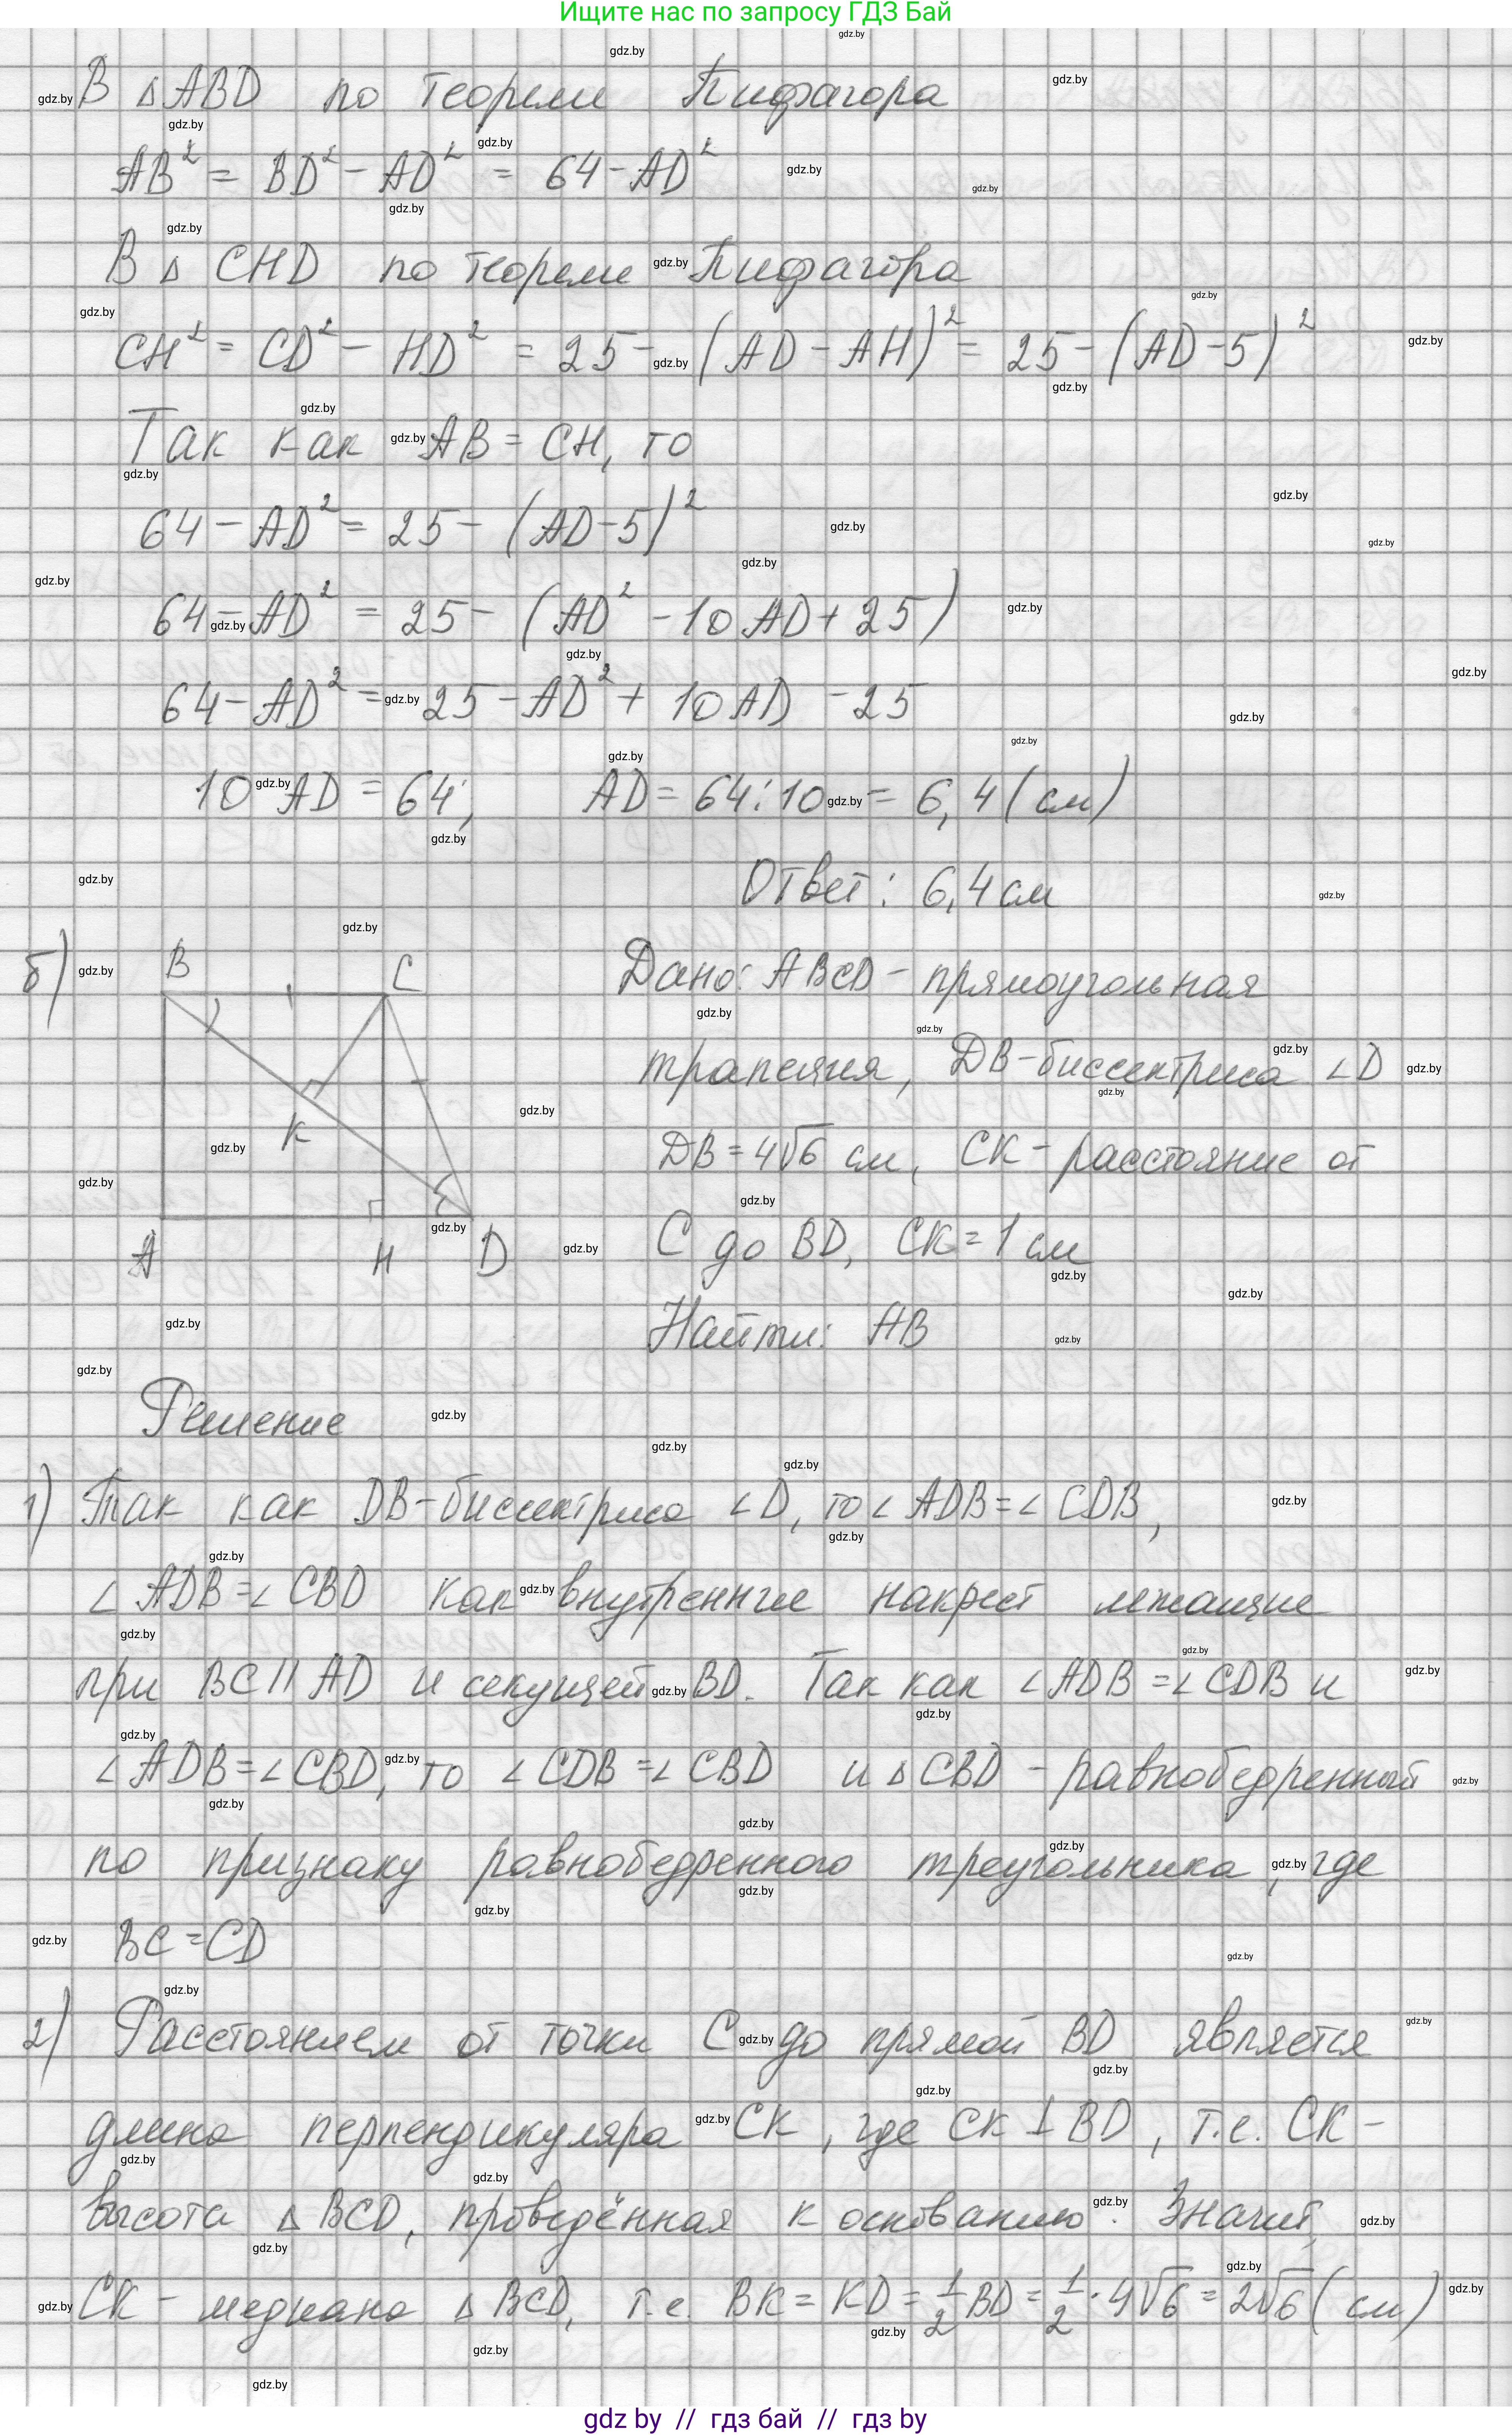 Ищите нас по запросу ГДЗ Бай
В △ABD по теореме Пифагора
AB² = BD² - AD² = 64 - AD²
В △ CHD по теореме Пифагора
CH² = CD² - HD² = 25 - (AD - AH)² = 25 - (AD - 5)²
Так как AB = CH, то
64 - AD² = 25 - (AD - 5)²
64 - AD² = 25 - (AD² - 10 AD + 25)
64 - AD² = 25 - AD² + 10 AD - 25
10 AD = 64; AD = 64 : 10 = 6,4 (см)
Ответ: 6,4 см
б) B C K A H D
Дано: ABCD - прямоугольная
трапеция, DB - биссектриса ∠D
DB = 4√6 см, CK - расстояние от
C до BD, CK = 1 см
Найти: AB
Решение
1) Так как DB - биссектриса ∠D, то ∠ADB = ∠CDB,
∠ADB = ∠CBD как внутренние накрест лежащие
при BC || AD и секущей BD. Так как ∠ADB = ∠CDB и
∠ADB = ∠CBD, то ∠CDB = ∠CBD и △CBD - равнобедренный
по признаку равнобедренного треугольника, где
BC = CD
2) Расстоянием от точки C до прямой BD является
длина перпендикуляра CK, где CK ⊥ BD, т.е. CK -
высота △BCD, проведённая к основанию. Значит,
CK - медиана △BCD, т.е. BK = KD = 1/2 BD = 1/2 · 4√6 = 2√6 (см)
gdz by // гдз бай // гдз by